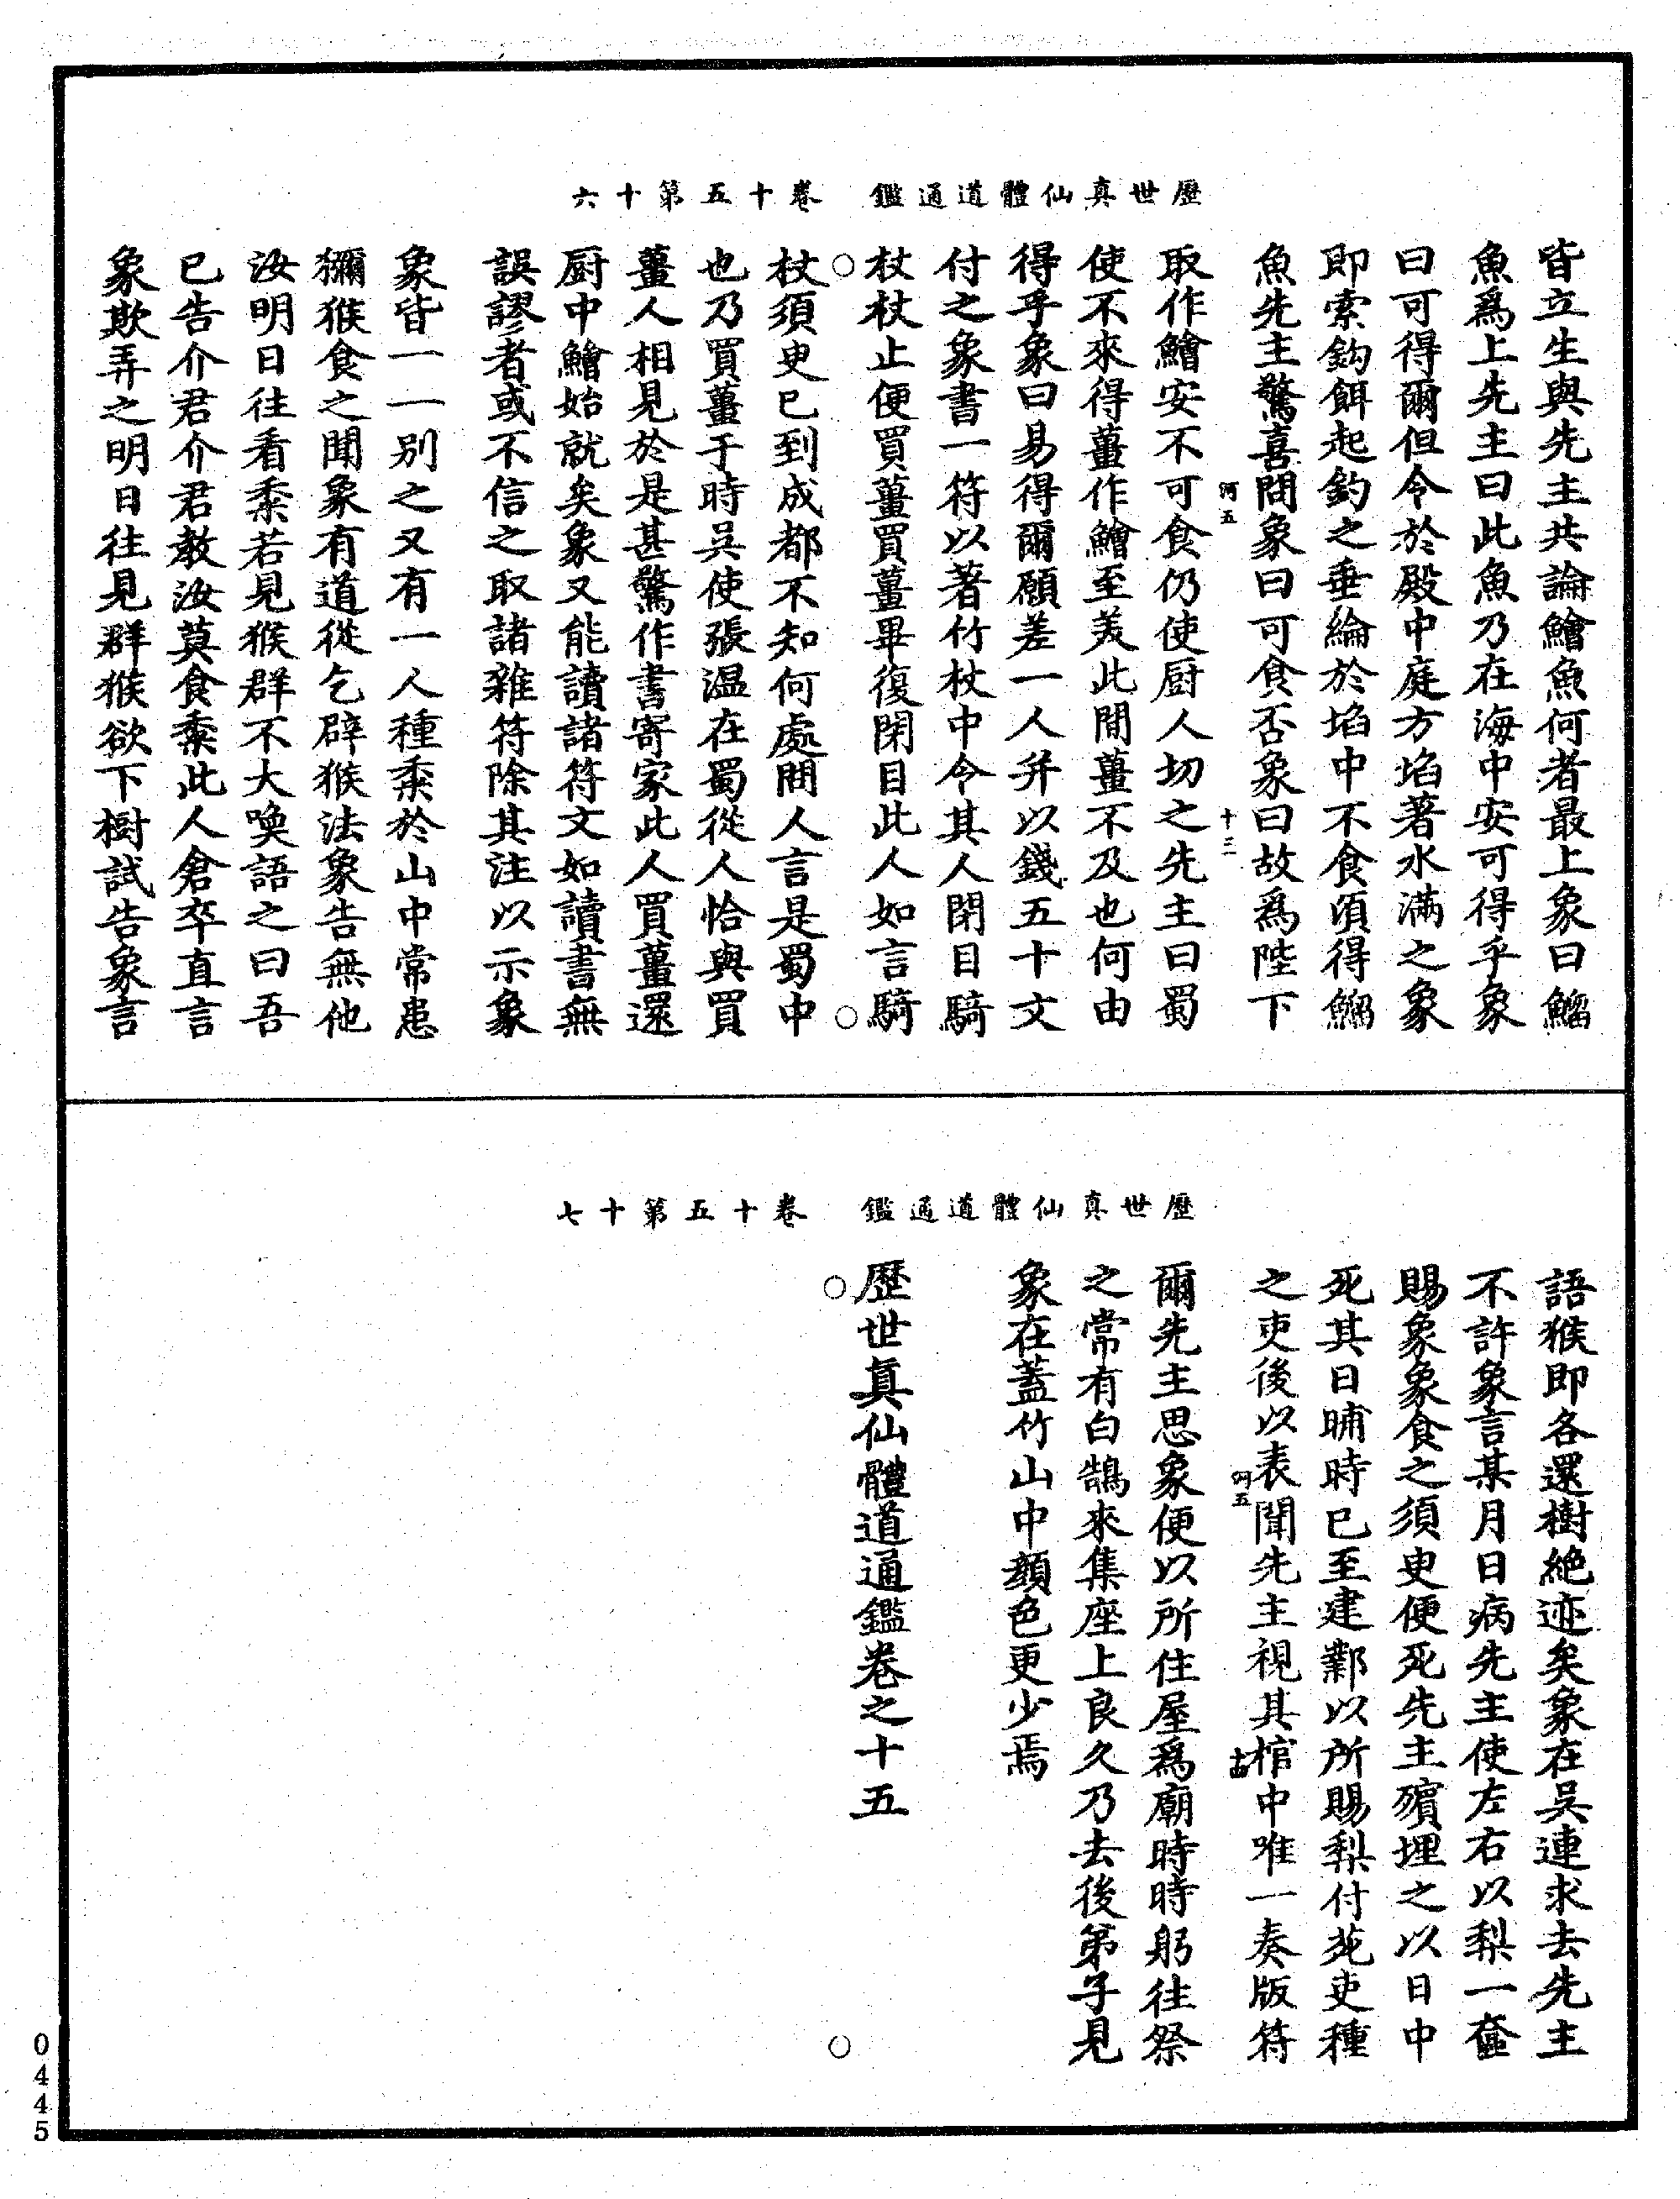 歷世真仙體道通鑑　卷十五第十六
皆立生與先主共論鱠魚何者最上象曰鯔
魚爲上先主曰此魚乃在海中安可得乎象
曰可得爾但令於殿中庭方埳著水滿之象
即索鈎餌起釣之垂綸於埳中不食頃得鯔
魚先主驚喜問象曰可食否象曰故爲陛下
河五　十三
取作鱠安不可食仍使厨人切之先主曰蜀
使不來得薑作鱠至美此間薑不及也何由
得乎象曰易得爾願差一人并以錢五十文
付之象書一符以著竹杖中令其人閉目騎
杖杖止便買薑買薑畢復閉目此人如言騎
杖須臾已到成都不知何處問人言是蜀中
也乃買薑于時吳使張温在蜀從人恰與買
薑人相見於是甚驚作書寄家此人買薑還
厨中鱠始就矣象又能讀諸符文如讀書無
誤謬者或不信之取諸雜符除其注以示象
象皆一一别之又有一人種黍於山中常患
獼猴食之聞象有道從乞辟猴法象告無他
汝明日往看黍若見猴群下大喚語之曰吾
已告介君介君教汝莫食黍此人倉卒直言
象欺弄之明日往見群猴欲下樹試告象言
歷世真仙體道通鑑　卷十五第十七
語猴即各還樹絶迹矣象在吳連求去先主
不許象言某月日病先主使左右以梨一奩
賜象象食之須臾便死先主殯埋之以日中
死其日晡時已至建鄴以所賜梨付苑吏種
之吏後以表聞先主視其棺中唯一奏版符
河五　十四
爾先主思象便以所住屋爲廟時時躬往祭
之常有白鵠來集座上良久乃去後弟子見
象在蓋竹山中顔色更少焉
歷世真仙體道通鑑卷之十五
0445